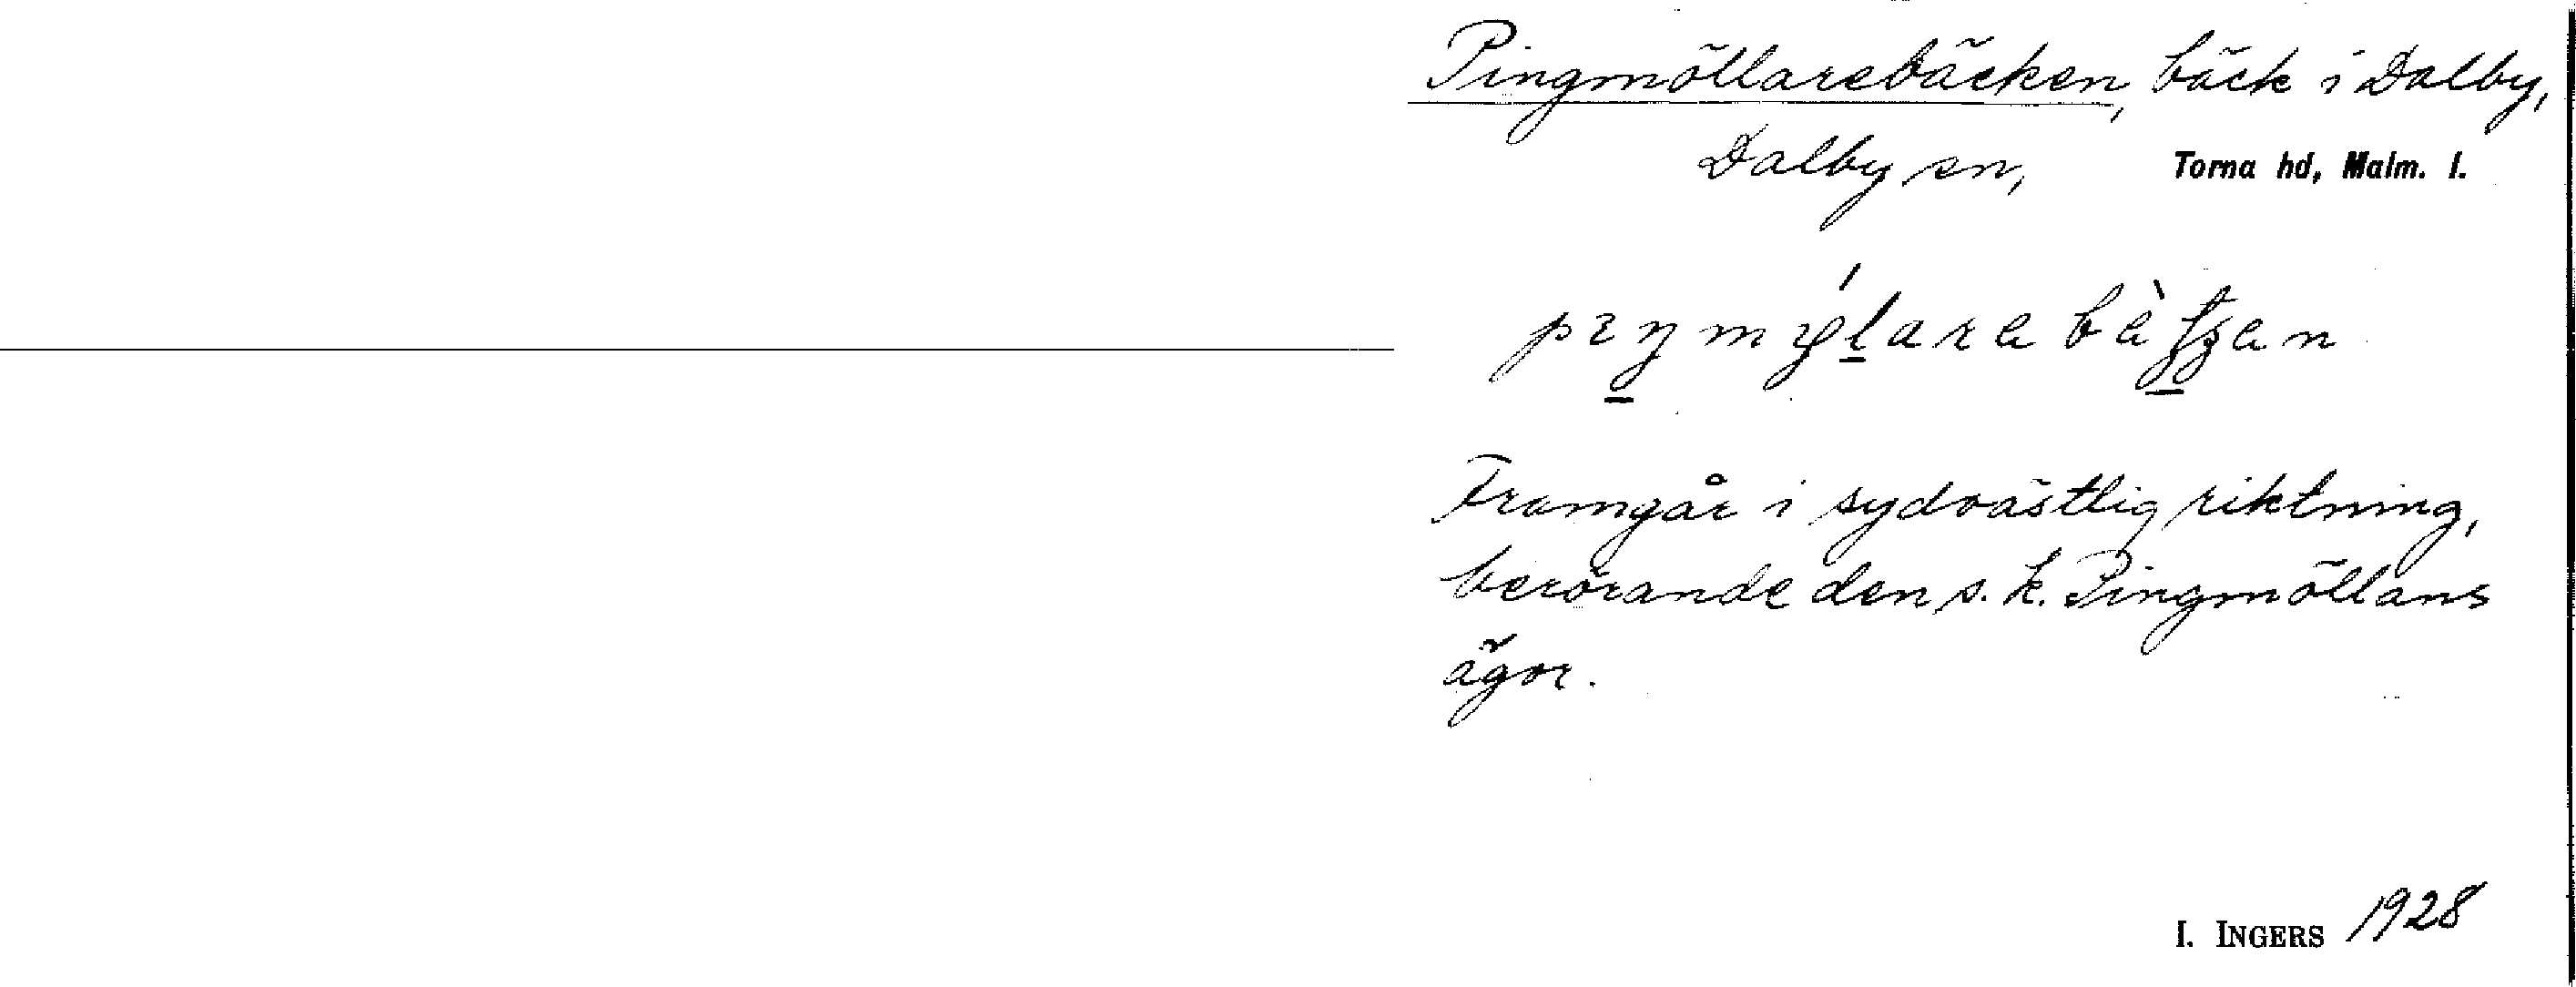 Pingmöllarebäcken, bäck i Dalby,
Dalby sn, Torna hd, Malm. l.
Framgår i sydvästlig riktning,
berörande den s. k. Pingmöllans
ägor.
I. INGERS 1928